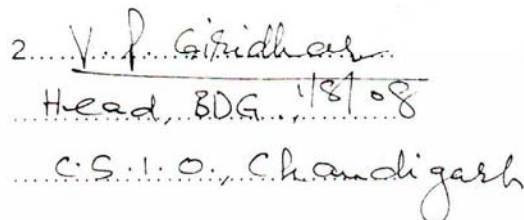 2. V. P. Giridhar
Head, BDG., 1/8/08
C.S.I.O., Chandigarh